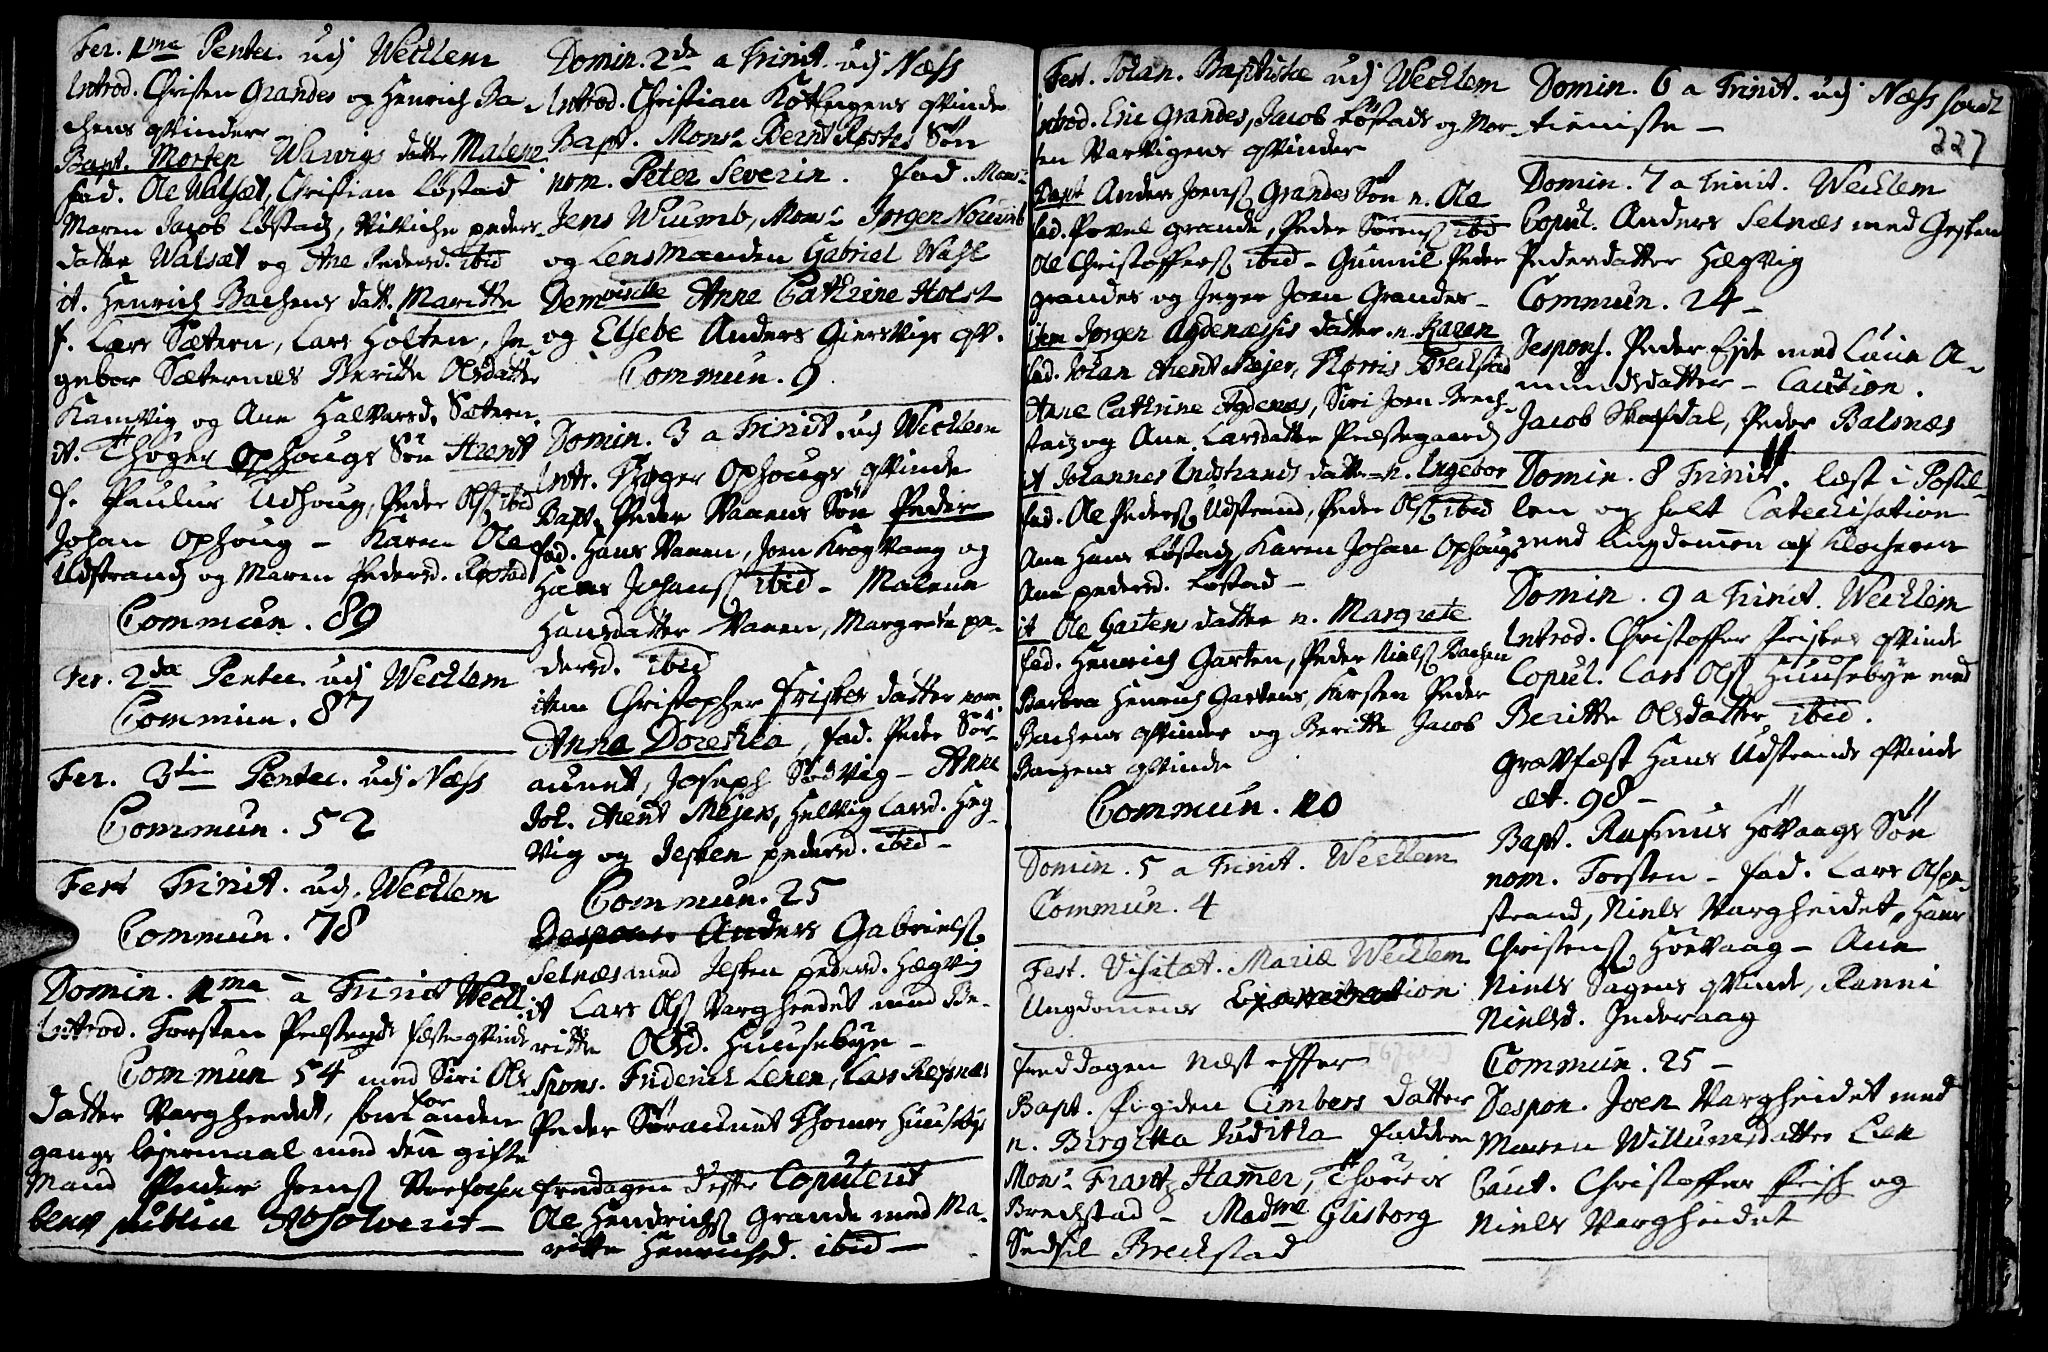 Fer. 1ma Pentec. udj Wechlem
Introd. Christen Grandes og Henrich Ba-
chens qvinder
Bapt. Morten Warvigs datt. Malene
fad. Ole Walsæt, Christian Løstad
Maren Jacob Løstad, peders-
datter Walsæt og Ane Pedersd. ibid
it. Henrich Bachens datt. Maritte
f. Lars Sætern, Lars Holten, In-
gebor Sæternes Beritte Olsdatter
Kamvig og Ane Halvarsd. Sætern
it. Thøger Ophougs Søn Arent
f. Paulus Udhoug, Peder Ols. ibid
Johan Ophoug - Karen Ole
Udstrand og Maren Pedersd. Løstad
Commun. 89
Fer. 2da Pentec. udj Wechlem
Commun. 87
Fer. 3tia Pentec. udj Næss
Commun. 52
Fest Trinit. udj Wechlem
Commun. 78
Domin. 1ma a Trinit Wechl.
Introd. Torsten qvinde
Commun 54 med Siri Ols
datter Vargheedet, som for anden
gangs leiermaal med den gifte
Mand Peder Joens.
bent publice Absolverit -
Domin. 2da a Trinit. udj Næss
Introd. Christian Køthagens qvinde
Bapt. Monsr Bernt Søn
nom. Peter Severin. fad. Monsr
Jens Wiumb, Monsr Jørgen
og Lensmanden Gabriel Wahl
Demoiselle Anne Cathrine Holst
og Elsebe Anders Giersvigs qv.
Commun. 9
Domin. 3 a Trinit. udj Wechlem
Intr. Trøger Ophougs qvinde
Bapt. Peder Vanens Søn Peder
fad. Hans Vanen, Joen Krogvaag og
Hans Johans. ibid - Malene
Hansdatter Vanen, Margrete pe-
dersd. ibid
item Christopher Friskes datter nom
Anna Dorethea, fad. Peder Sør-
aunet, Joseph Sødvig - Anne
Joh. Arent Mejers, Helvig Larsd. Heg-
vig og Jesken pedersd. ibid -
Commun. 25
Despons. Anders Gabriels.
Selnæs med Jesken pedersd. Hægvig
it Lars Ols. Vargheedet med Be-
ritte Olsd. Huusebye -
Spons. Friderich Leren, Lars Rejsnæs
Peder Søraunet Thomes Huusebye
fredagen dette Copulerit
Ole Hendrichs. Grande med Ma-
ritte Henrichsd. ibid -
Fest. Johan. Baptistæ udj Wechlem
Introd. Eric Grandes, Jacob Løstads og Mor-
ten Varvigens qvinder
Bapt Anders Joens. Grandes Søn n. Ole
fad. Povel grande, Peder Sørens. ibid
Ole Christoffers. ibid - Gunnil Peder
grandes og Inger Joen Grandes -
item Jørgen Agdenæssis datter n. Karen
fad. Johan Arent Mejer, Brechstad
Anne Cathrine Agdenæs, Siri Joen Brech-
stad og Ane Larsdatter Præstegaard
it Johannes Indstrands datter n. Ingebor
fad. Ole Peders. Udstrand, Peder Ols. ibid
Ane Hans Løstad, Karen Johan Ophougs
Ane pedersd. Løstad -
it Ole Garten datter n. Margrete
fad. Henrich Garten, Peder Niels. Bachen
Barbra Henrich Gartens, Kirsten Peder
Bachens qvinder og Beritte Jacob
Bachens qvinde
Commun. 20
Domin. 5 a Trinit. Wechlem
Commun. 4
Fest. Visitat. Mariæ Wechlem
Ungdomens Examination
fredagen næst effter
Bapt. Cimbers datter
n. Birgitta Juditha faddere
Monsr Frantz Hamer, Thøeris
Brechstad - Madme Glisborg
Sedsel Brechstad
Domin. 6 a Trinit. udj Næss
tieniste -
227
Domin. 7 a Trinit. Wechlem
Copul. Anders Selnæs med Gesken
Pedersdatter Hægvig
Commun. 24 -
Despons. Peder Eide med Laue A-
mundsdatter - Caution.
Jacob Skafdal, Peder Balsnæs
Domin. 8 Trinit. læst i Postil-
len og holt Catechisation
med Ungdommen af Klocheren
Domin. 9 a Trinit. Wechlem
Introd. Christoffer Friskes qvinde
Copul. Lars Ols. Huusebye med
Beritte Olsdatter ibid.
Gravfæst Hans Udstrands qvinde
æt. 98 -
Bapt. Rasmus Høvaags Søn
nom. Torsten - fad. Lars
strand, Niels Vargheidet, Hans
Christens. Høevaag - Ane
Niels Sagens qvinde, Ranni
Nielsd. Inderaag
Commun. 25 -
Despon. Joen Vargheidet med
Maren Willumsdatter Lien
Caut. Christoffer Frisk og
Niels Vargheidet